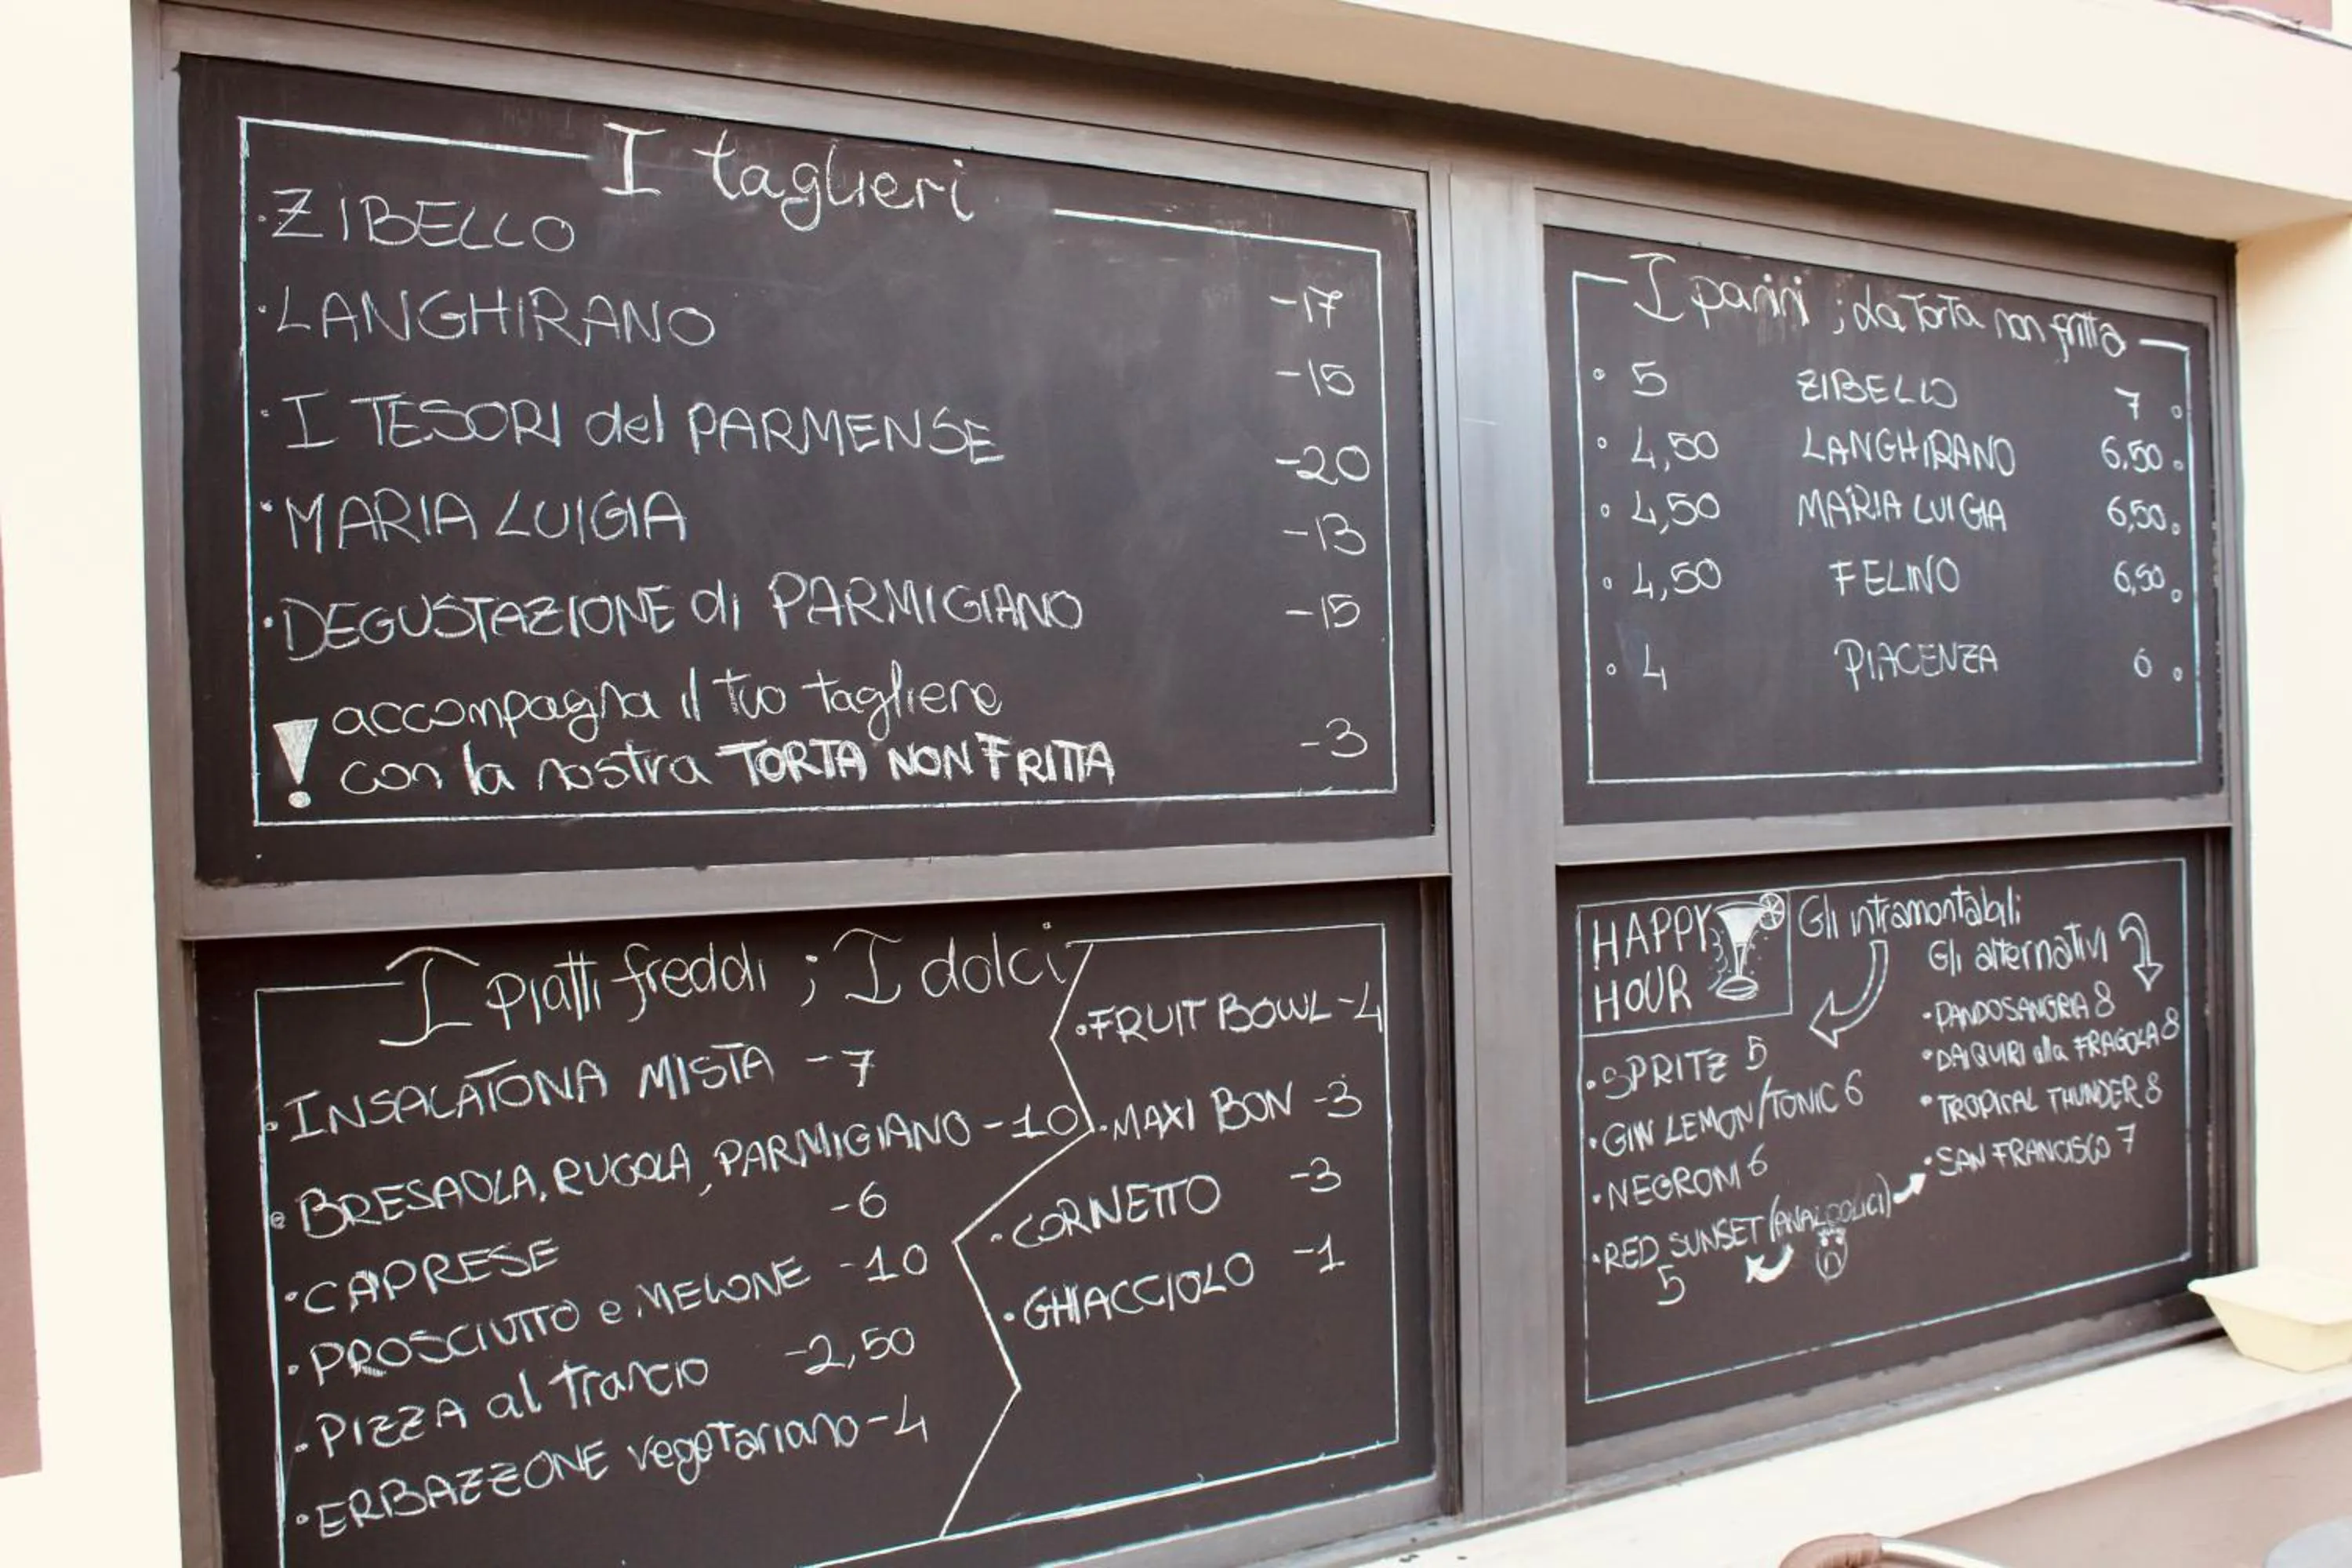 I taglieri
· ZIBELLO -17
· LANGHIRANO -15
· I TESORI del PARMENSE -20
· MARIA LUIGIA -13
· DEGUSTAZIONE di PARMIGIANO -15
! accompagna il tuo tagliere
con la nostra TORTA NON FRITTA -3
I panini ; da Torta non fritta
° 5 ZIBELLO 7 °
° 4,50 LANGHIRANO 6.50 °
° 4,50 MARIA LUIGIA 6,50 °
° 4,50 FELINO 6,50 °
° 4 PIACENZA 6 °
I piatti freddi ; I dolci
· INSALATONA MISTA -7
· BRESAOLA, RUGOLA, PARMIGIANO -10
· CAPRESE -6
· PROSCIUTTO e MELONE -10
· PIZZA al Trancio -2,50
· ERBAZZONE vegetariano -4
· FRUIT BOWL -4
· MAXI BON -3
· CORNETTO -3
· GHIACCIOLO -1
HAPPY
HOUR
Gli intramontabili
· SPRITZ 5
· GIN LEMON/TONIC 6
· NEGRONI 6
· RED SUNSET (ANALCOLICI)
5
Gli alternativi
· PANDOSANGRIA 8
· DAIQUIRI alla FRAGOLA 8
· TROPICAL THUNDER 8
· SAN FRANCISCO 7